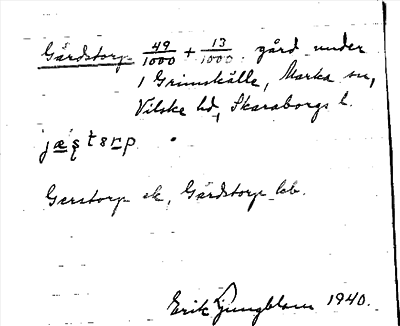 Gärdstorp 49/1000 + 13/1000 gård under
1 Grimskälle, Marka sn,
Vilske hd, Skaraborgs l.
jæṣtsrp .
Gerstorp ek, Gärdstorp kb.
Erik Ljungblom 1940.